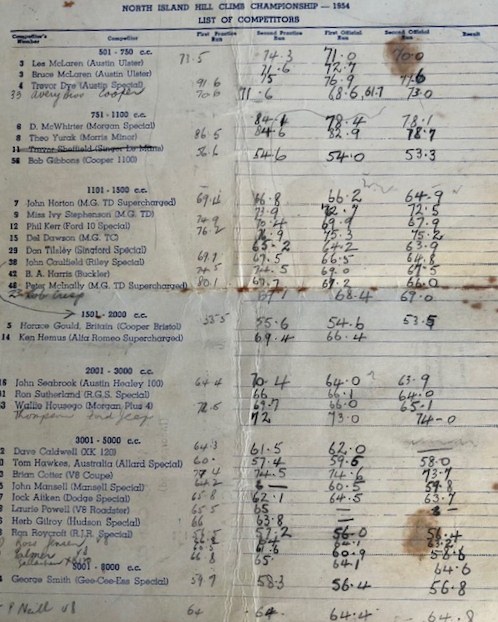 NORTH ISLAND HILL CLIMB CHAMPIONSHIP — 1954
LIST OF COMPETITORS
Competitor's Number Competitor First Practice Run Second Practice Run First Official Run Second Official Run Result
501 - 750 c.c.
3 Lee McLaren (Austin Ulster) 71.5 74.3 71.0 70.0
3 Bruce McLaren (Austin Ulster) 71.6 72.7
4 Trevor Dye (Austin Special) 91.6 75 76.9 77.6
33 Cooper 70.6 71.6 68.6, 61.7 73.0
751 - 1100 c.c.
6 D. McWhirter (Morgan Special) 84.1 78.4 78.1
8 Theo Yurak (Morris Minor) 86.5 84.6 82.9 78.7
11 Trevor Sheffield (Singer Le Mans)
58 Bob Gibbons (Cooper 1100) 56.6 54.6 54.0 53.3
1101 - 1500 c.c.
7 John Horton (M.G. TD Supercharged) 69.4 66.8 66.2 64.9
9 Miss Ivy Stephenson (M.G. TD) 73.9 72.7 72.5
12 Phil Kerr (Ford 10 Special) 74.9 70.4 69.9 67.9
15 Del Dawson (M.G. TC) 76.2 76.9 75.3 75.2
29 Don Tilsley (Singford Special) 65.2 64.2 63.9
38 John Caulfield (Riley Special) 69.7 67.5 66.5 64.8
42 B. A. Harris (Buckler) 74.5 74.5 69.0 67.5
48 Peter McInally (M.G. TD Supercharged) 80.1 67.7 67.2 66.0
67.1 68.4 69.0
1501 - 2000 c.c.
5 Horace Gould, Britain (Cooper Bristol) 55.5 55.6 54.6 53.5
14 Ken Hemus (Alfa Romeo Supercharged) 69.4 66.4
2001 - 3000 c.c.
16 John Seabrook (Austin Healey 100) 64.4 70.4 64.0 63.9
Ron Sutherland (R.G.S. Special) 66 66.1 64.0
Wallie Housego (Morgan Plus 4) 72.5 69.7 66.0 65.1
Thompson Ford Jeep 72 73.0 74-0
3001 - 5000 c.c.
Dave Caldwell (XK 120) 64.3 61.5 62.0
Tom Hawkes, Australia (Allard Special) 60. 57.4 59.5 58.0
Brian Cotter (V8 Coupe) 77.4 74.5 74.6 73.7
John Mansell (Mansell Special) 64.2 60.5 59.8
Jock Aitken (Dodge Special) 65.8 62.1 64.5 63.7
Laurie Powell (V8 Roadster) 65.5 65 —
Herb Gilroy (Hudson Special) 66 63.8 —
Ron Roycroft (R.J.R. Special) 57.2 56.0 56.4
Ross Jensen V8 63.2
Gilmer V8 61.6 60.9 58.6
66.8 65. 64.1 64.6
5001 - 8000 c.c.
George Smith (Gee-Cee-Ess Special) 59.7 58.3 56.4 56.8
P Neill V8 64 64 64.4 64.8